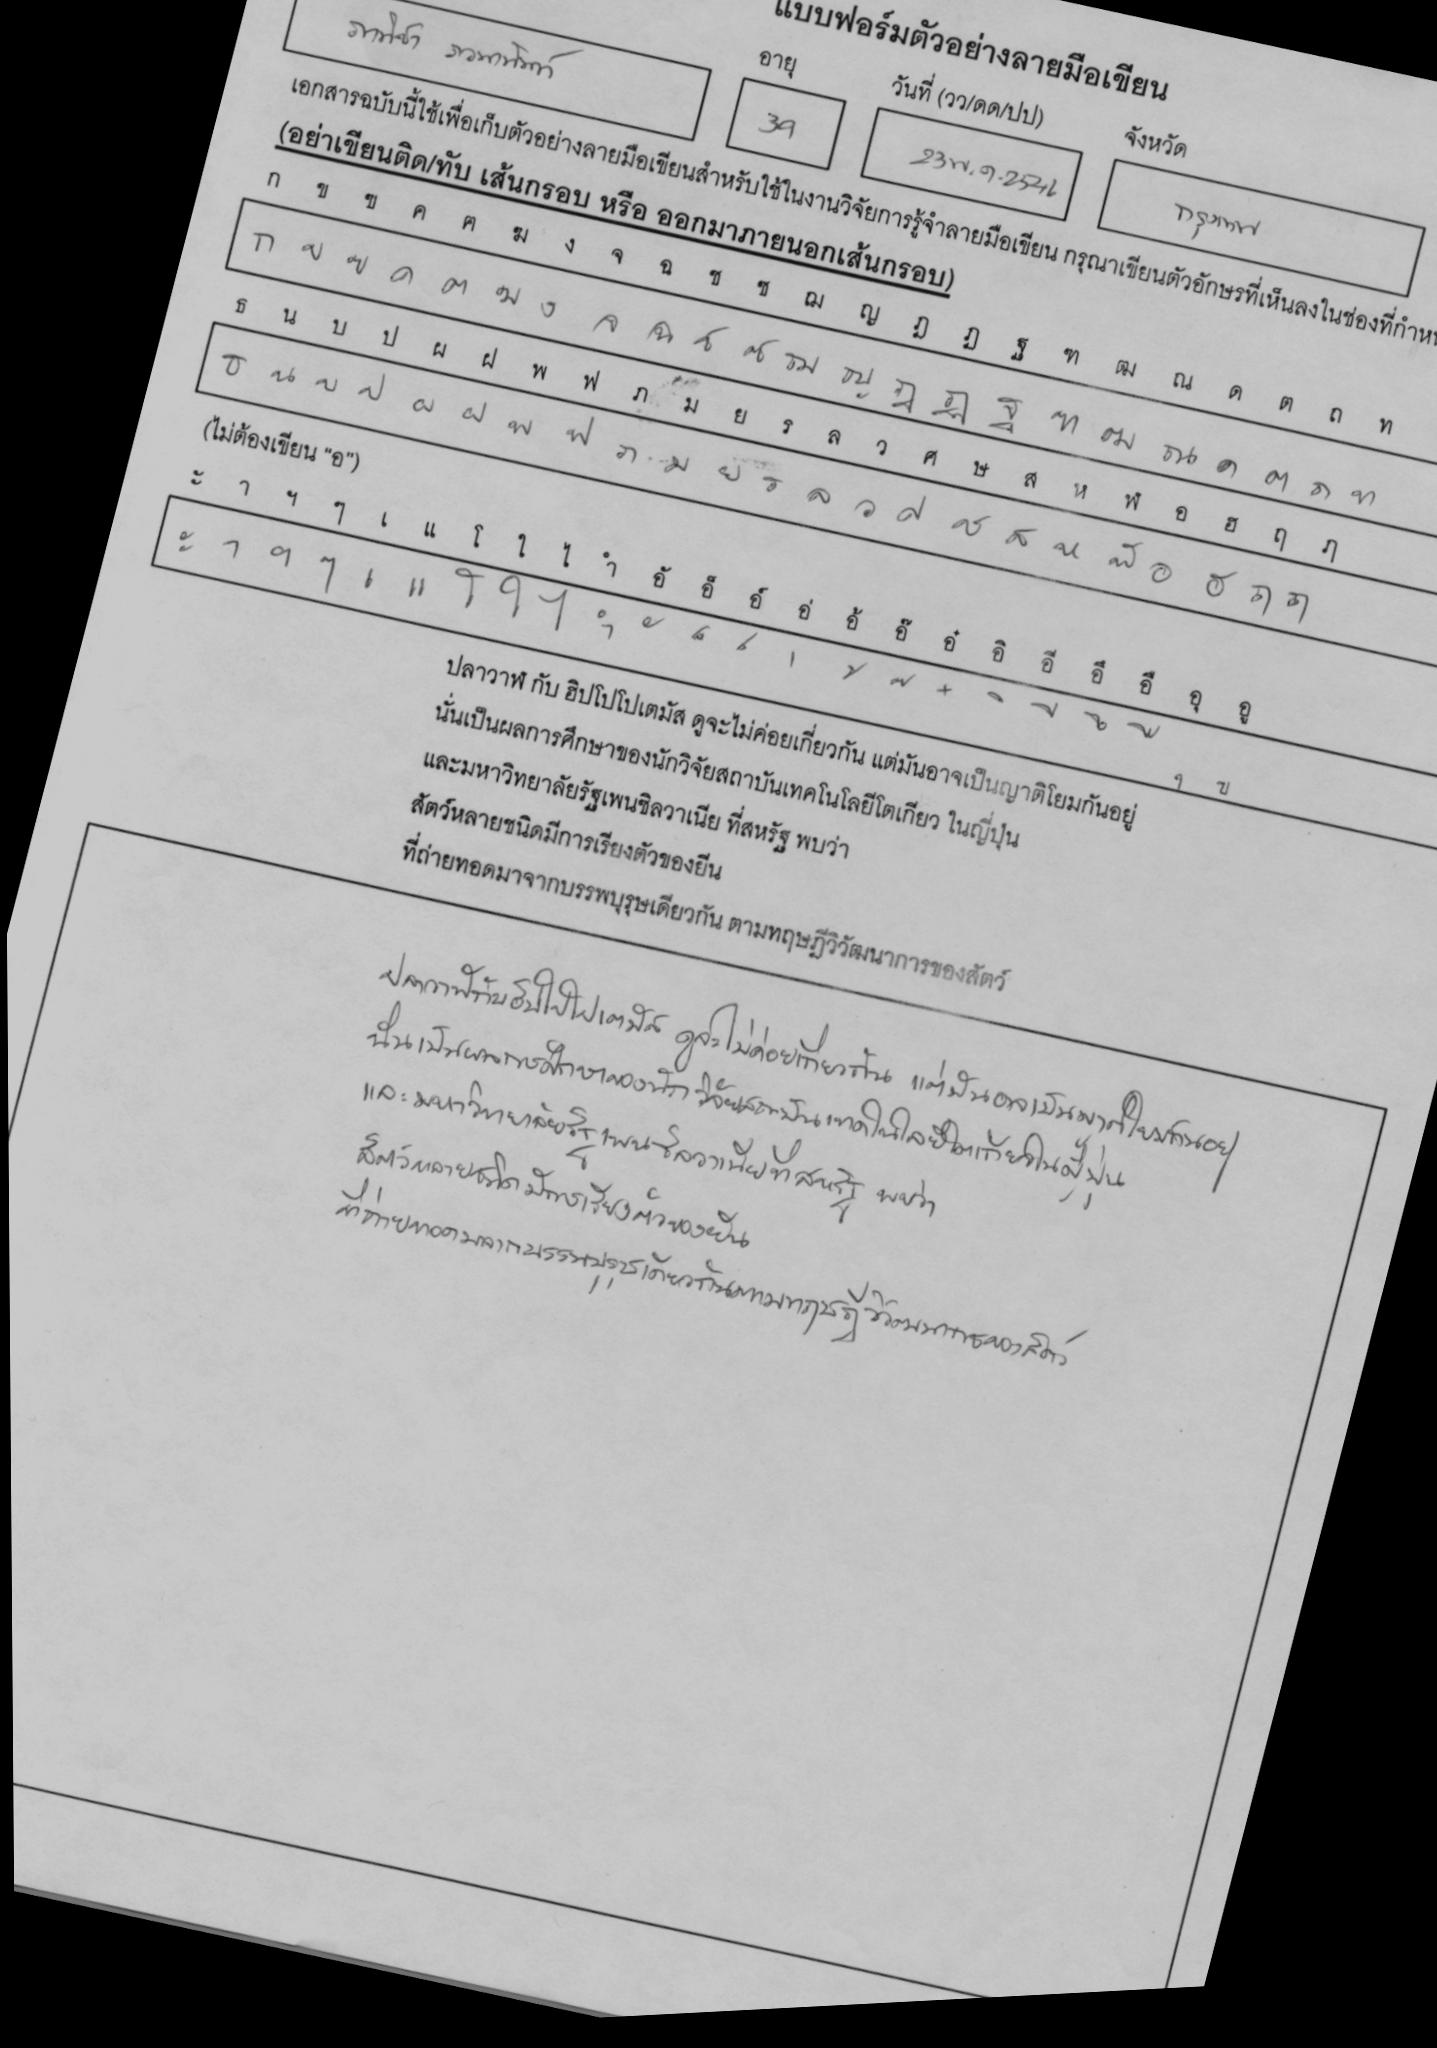 แบบฟอร์มตัวอย่างลายมือเขียน
อายุ
วันที่ (วว/ดด/ปป)
จังหวัด
39
23 พ.ค. 2541
กรุงเทพ
เอกสารฉบับนี้ใช้เพื่อเก็บตัวอย่างลายมือเขียนสำหรับใช้ในงานวิจัยการรู้จำลายมือเขียน กรุณาเขียนตัวอักษรที่เห็นลงในช่องที่กำหน
(อย่าเขียนติด/ทับ เส้นกรอบ หรือ ออกมาภายนอกเส้นกรอบ)
ก ข ฃ ค ฅ ฆ ง จ ฉ ช ซ ฌ ญ ฎ ฏ ฐ ฑ ฒ ณ ด ต ถ ท
ก ข ฃ ค ฅ ฆ ง จ ฉ ช ซ ฌ ญ ฎ ฏ ฐ ฑ ฒ ณ ด ต ถ ท
ธ น บ ป ผ ฝ พ ฟ ภ ม ย ร ล ว ศ ษ ส ห ฬ อ ฮ ฤ ฦ
ธ น บ ป ผ ฝ พ ฟ ภ ม ย ร ล ว ศ ษ ส ห ฬ อ ฮ ฤ ฦ
(ไม่ต้องเขียน "อ")
ะ า ฯ ๆ เ แ โ ใ ไ ำ อั อ็ อ์ อ่ อ้ อ๊ อ๋ อิ อี อึ อื อุ อู
ะ า ฯ ๆ เ แ โ ใ ไ ำ ั ็ ์ ่ ้ ๊ ๋ ิ ี ึ ื ุ ู
ปลาวาฬ กับ ฮิปโปโปเตมัส ดูจะไม่ค่อยเกี่ยวกัน แต่มันอาจเป็นญาติโยมกันอยู่
นั่นเป็นผลการศึกษาของนักวิจัยสถาบันเทคโนโลยีโตเกียว ในญี่ปุ่น
และมหาวิทยาลัยรัฐเพนซิลวาเนีย ที่สหรัฐ พบว่า
สัตว์หลายชนิดมีการเรียงตัวของยีน
ที่ถ่ายทอดมาจากบรรพบุรุษเดียวกัน ตามทฤษฎีวิวัฒนาการของสัตว์
ปลาวาฬกับฮิปโปโปเตมัส ดูจะไม่ค่อยเกี่ยวกัน แต่มันอาจเป็นญาติโยมกันอยู่
นั่นเป็นผลการศึกษาของนักวิจัยสถาบันเทคโนโลยีโตเกียวในญี่ปุ่น
และมหาวิทยาลัยรัฐเพนซิลวาเนียที่สหรัฐ พบว่า
สัตว์หลายชนิดมีการเรียงตัวของยีน
ที่ถ่ายทอดมาจากบรรพบุรุษเดียวกันตามทฤษฎีวิวัฒนาการของสัตว์